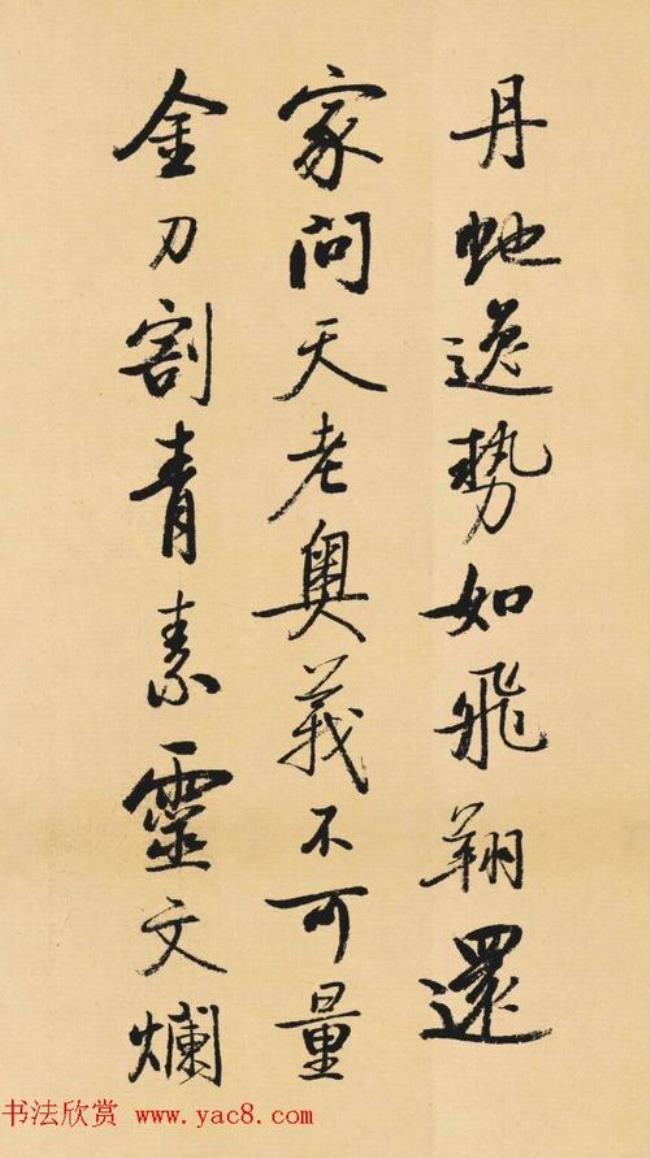 丹虵逸势如飛翔還
家問天老奥義不可量
金刀割青素靈文爛
书法欣赏 www.yac8.com